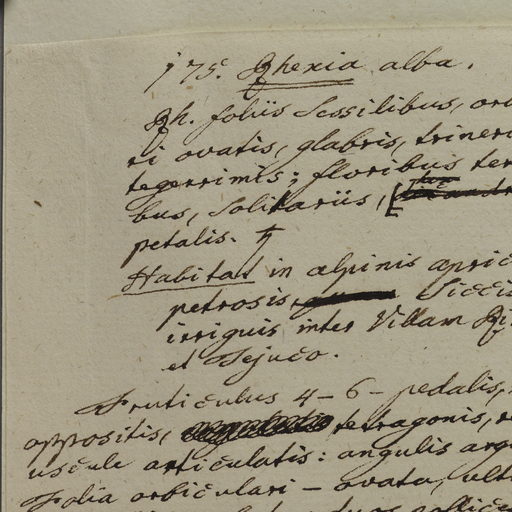 175. Rhexia alba.
Rh. foliis sessilibus, or
ri ovatis, glabris, triner
tegerrimis; floribus ter
bus, solitariis, [
petalis. ♄
Habitat in alpinis apric
petrosis, Sicci
irriguis inter Villam Ri
et Tejuco.
Fruticulus 4-6-pedalis,
oppositis, tetragonis, r
uscule articulatis: angulis arg
Folia orbiculari-ovata, ult